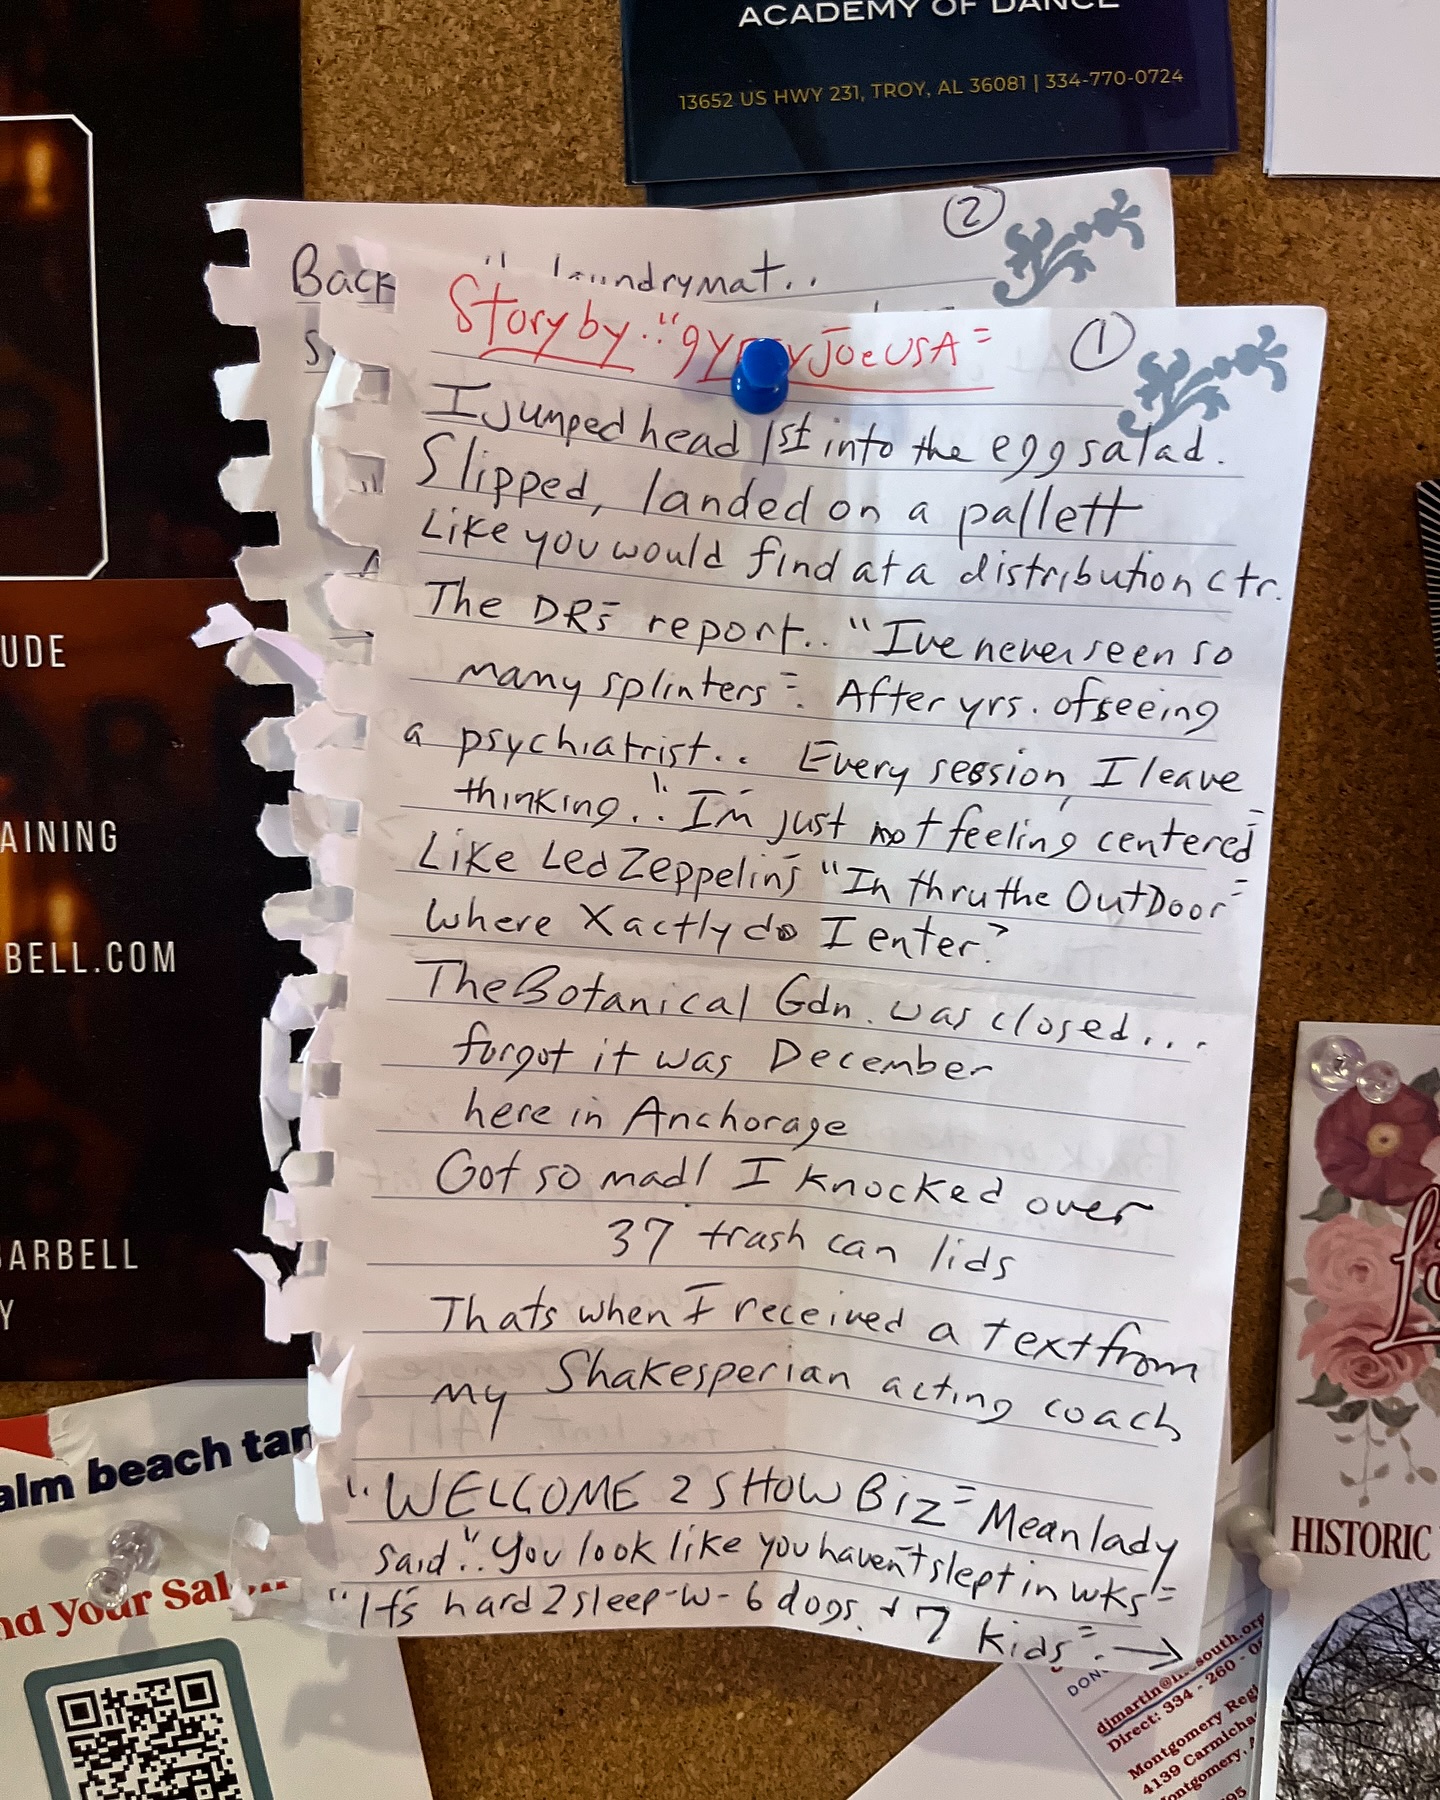 ACADEMY OF DANCE
13652 US HWY 231, TROY, AL 36081 | 334-770-0724
②
Back laundrymat..
Story by "gypsyJoeUSA"
①
I jumped head 1st into the egg salad.
Slipped, landed on a pallett
Like you would find at a distribution ctr.
The DR's report.. "I've never seen so
many splinters". After yrs. of seeing
a psychiatrist.. Every session, I leave
thinking.. "I'm just not feeling centered"
Like Led Zeppelin's "In thru the OutDoor"
Where Xactly do I enter?
The Botanical Gdn. was closed...
forgot it was December
here in Anchorage
Got so mad! I knocked over
37 trash can lids
Thats when I received a text from
my Shakesperian acting coach
"WELCOME 2 SHOW BIZ" Mean lady
said "You look like you haven't slept in wks"
"It's hard 2 sleep -w- 6 dogs + 7 kids". →
UDE
AINING
BELL.COM
BARBELL
Y
alm beach tan
nd your
HISTORIC
djmartin@
south.org
Direct: 334-260-0
Montgomery Reg
4139 Carmicha
ontgomery, A